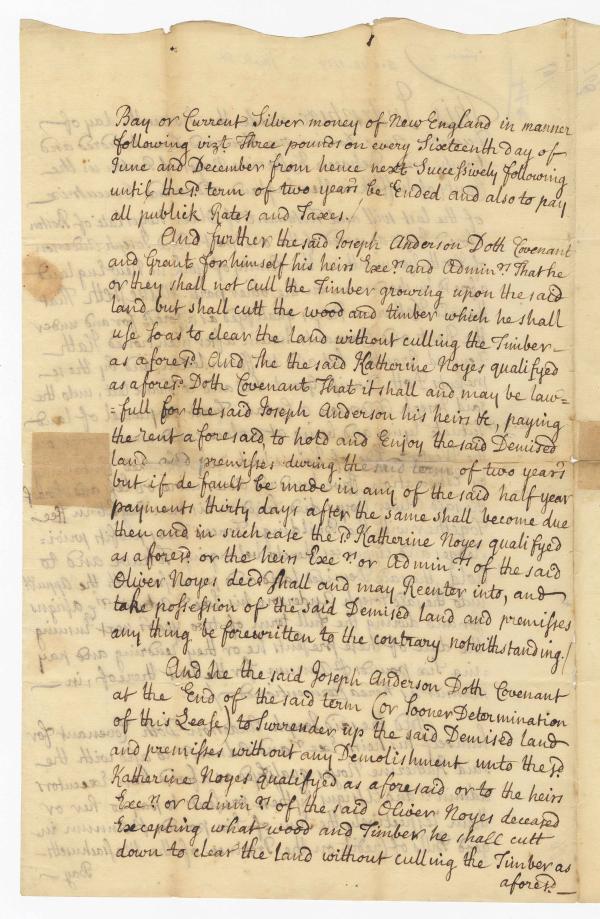 Bay or Current Silver money of New England in manner
following vizt Three pounds on every Sixteenth day of
June and December from hence next Successively following
until the sd. term of two years be Ended and also to pay
all publick Rates and Taxes./
And further the said Joseph Anderson Doth Covenant
and Grant for himself his heirs Exe.rs and Admin.rs That he
or they shall not cull the Timber growing upon the said
land but shall cutt the wood and timber which he shall
use so as to clear the land without culling the Timber
as aforesd. And She the said Katherine Noyes qualifyed
as aforesd. Doth Covenant That it shall and may be law=
=full for the said Joseph Anderson his heirs &c, paying
the rent aforesaid, to hold and Enjoy the said Demised
land and premisses during the said term of two years
but if default be made in any of the said half year
payments thirty days after the same shall become due
then and in such case the sd. Katherine Noyes qualifyed
as aforesd. or the heirs Exe.rs or Admin.rs of the said
Oliver Noyes deced shall and may Reenter into, and
take possession of the said Demised land and premisses
any thing beforewritten to the contrary notwithstanding./
And he the said Joseph Anderson Doth Covenant
at the End of the said term (or Sooner Determination
of this Lease) to Surrender up the said Demised land
and premisses without any Demolishment unto the sd.
Katherine Noyes qualifyed as aforesaid or to the heirs
Exe.rs or Admin.rs of the said Oliver Noyes deceased
Excepting what wood and Timber he shall cutt
down to clear the land without culling the Timber as
aforesd.